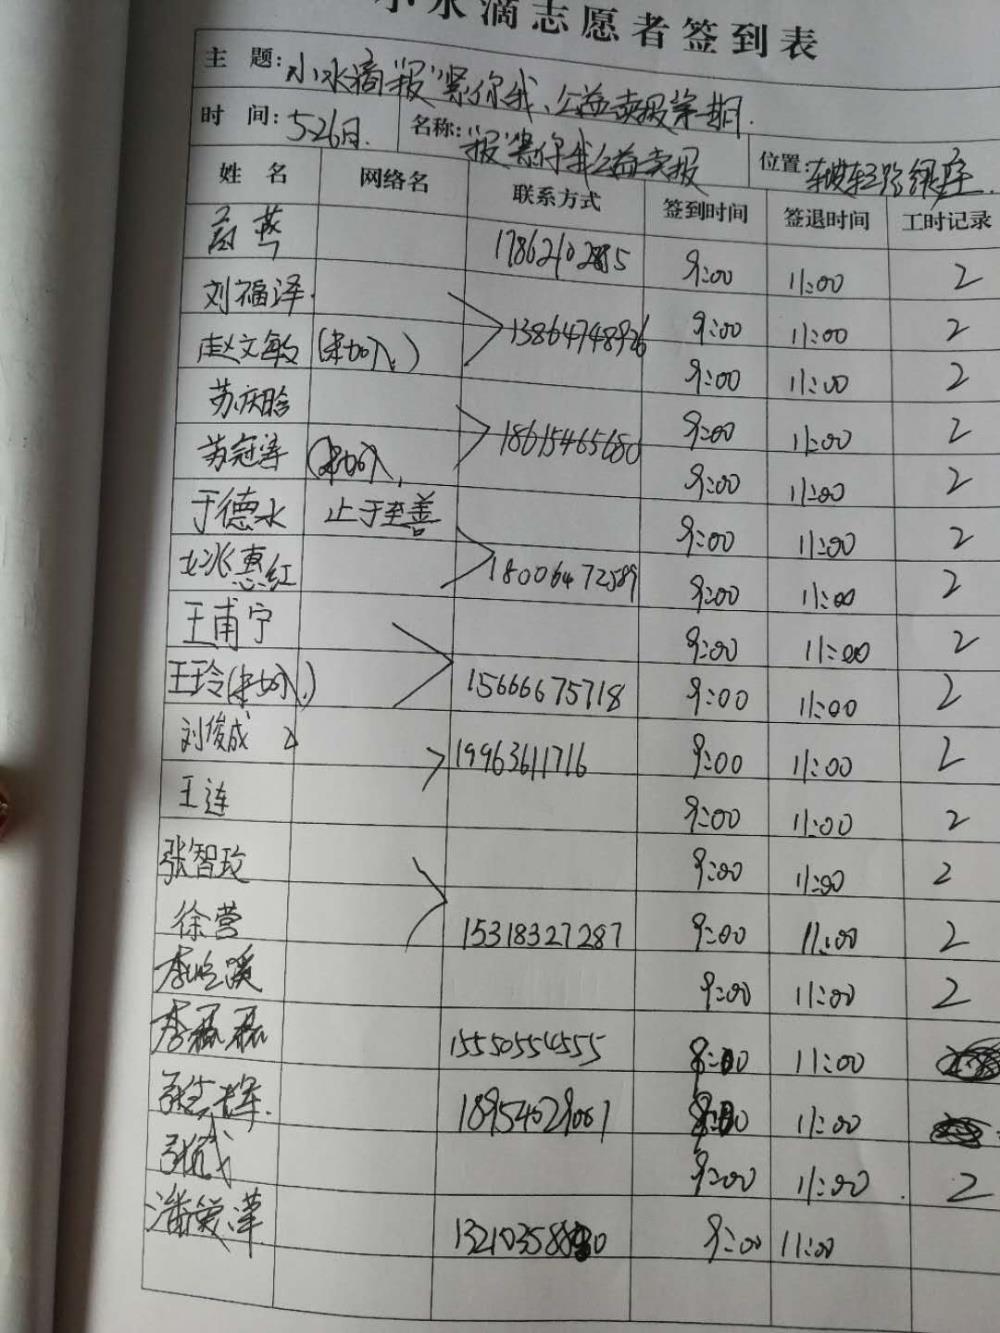 小水滴志愿者签到表
主 题: 小水滴"报"紧你我、公益卖报第一期
时 间: 5.26日. 名称: "报"紧你我公益卖报 位置:
姓 名 网络名 联系方式 签到时间 签退时间 工时记录
燕 9:00 11:00 2
刘福泽. 9:00 11:00 2
赵文敏 (未加入) 13864748926 9:00 11:00 2
苏庆晗 9:00 11:00 2
苏冠涛 (未加入) 18615465680 9:00 11:00 2
于德水 止于至善 9:00 11:00 2
惠红 18006472589 9:00 11:00 2
王甫宁 9:00 11:00 2
王玲(未加入) 15666675718 9:00 11:00 2
刘俊成 19963611716 9:00 11:00 2
王连 9:00 11:00 2
张智玟 9:00 11:00 2
徐营 15318327287 9:00 11:00 2
李 溪 9:00 11:00 2
李磊 15550554555 11:00
18954029001 11:00
张 9:00 11:00 2
潘 泽 9:00 11:00